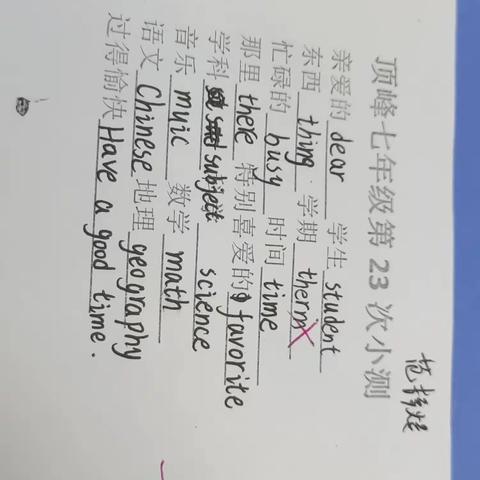 顶峰七年级第23次小测
亲爱的 dear 学生 student
东西 thing 学期 therm
忙碌的 busy 时间 time
那里 there 特别喜爱的 favorite
学科 subject science
音乐 muic 数学 math
语文 Chinese 地理 geography
过得愉快 Have a good time.